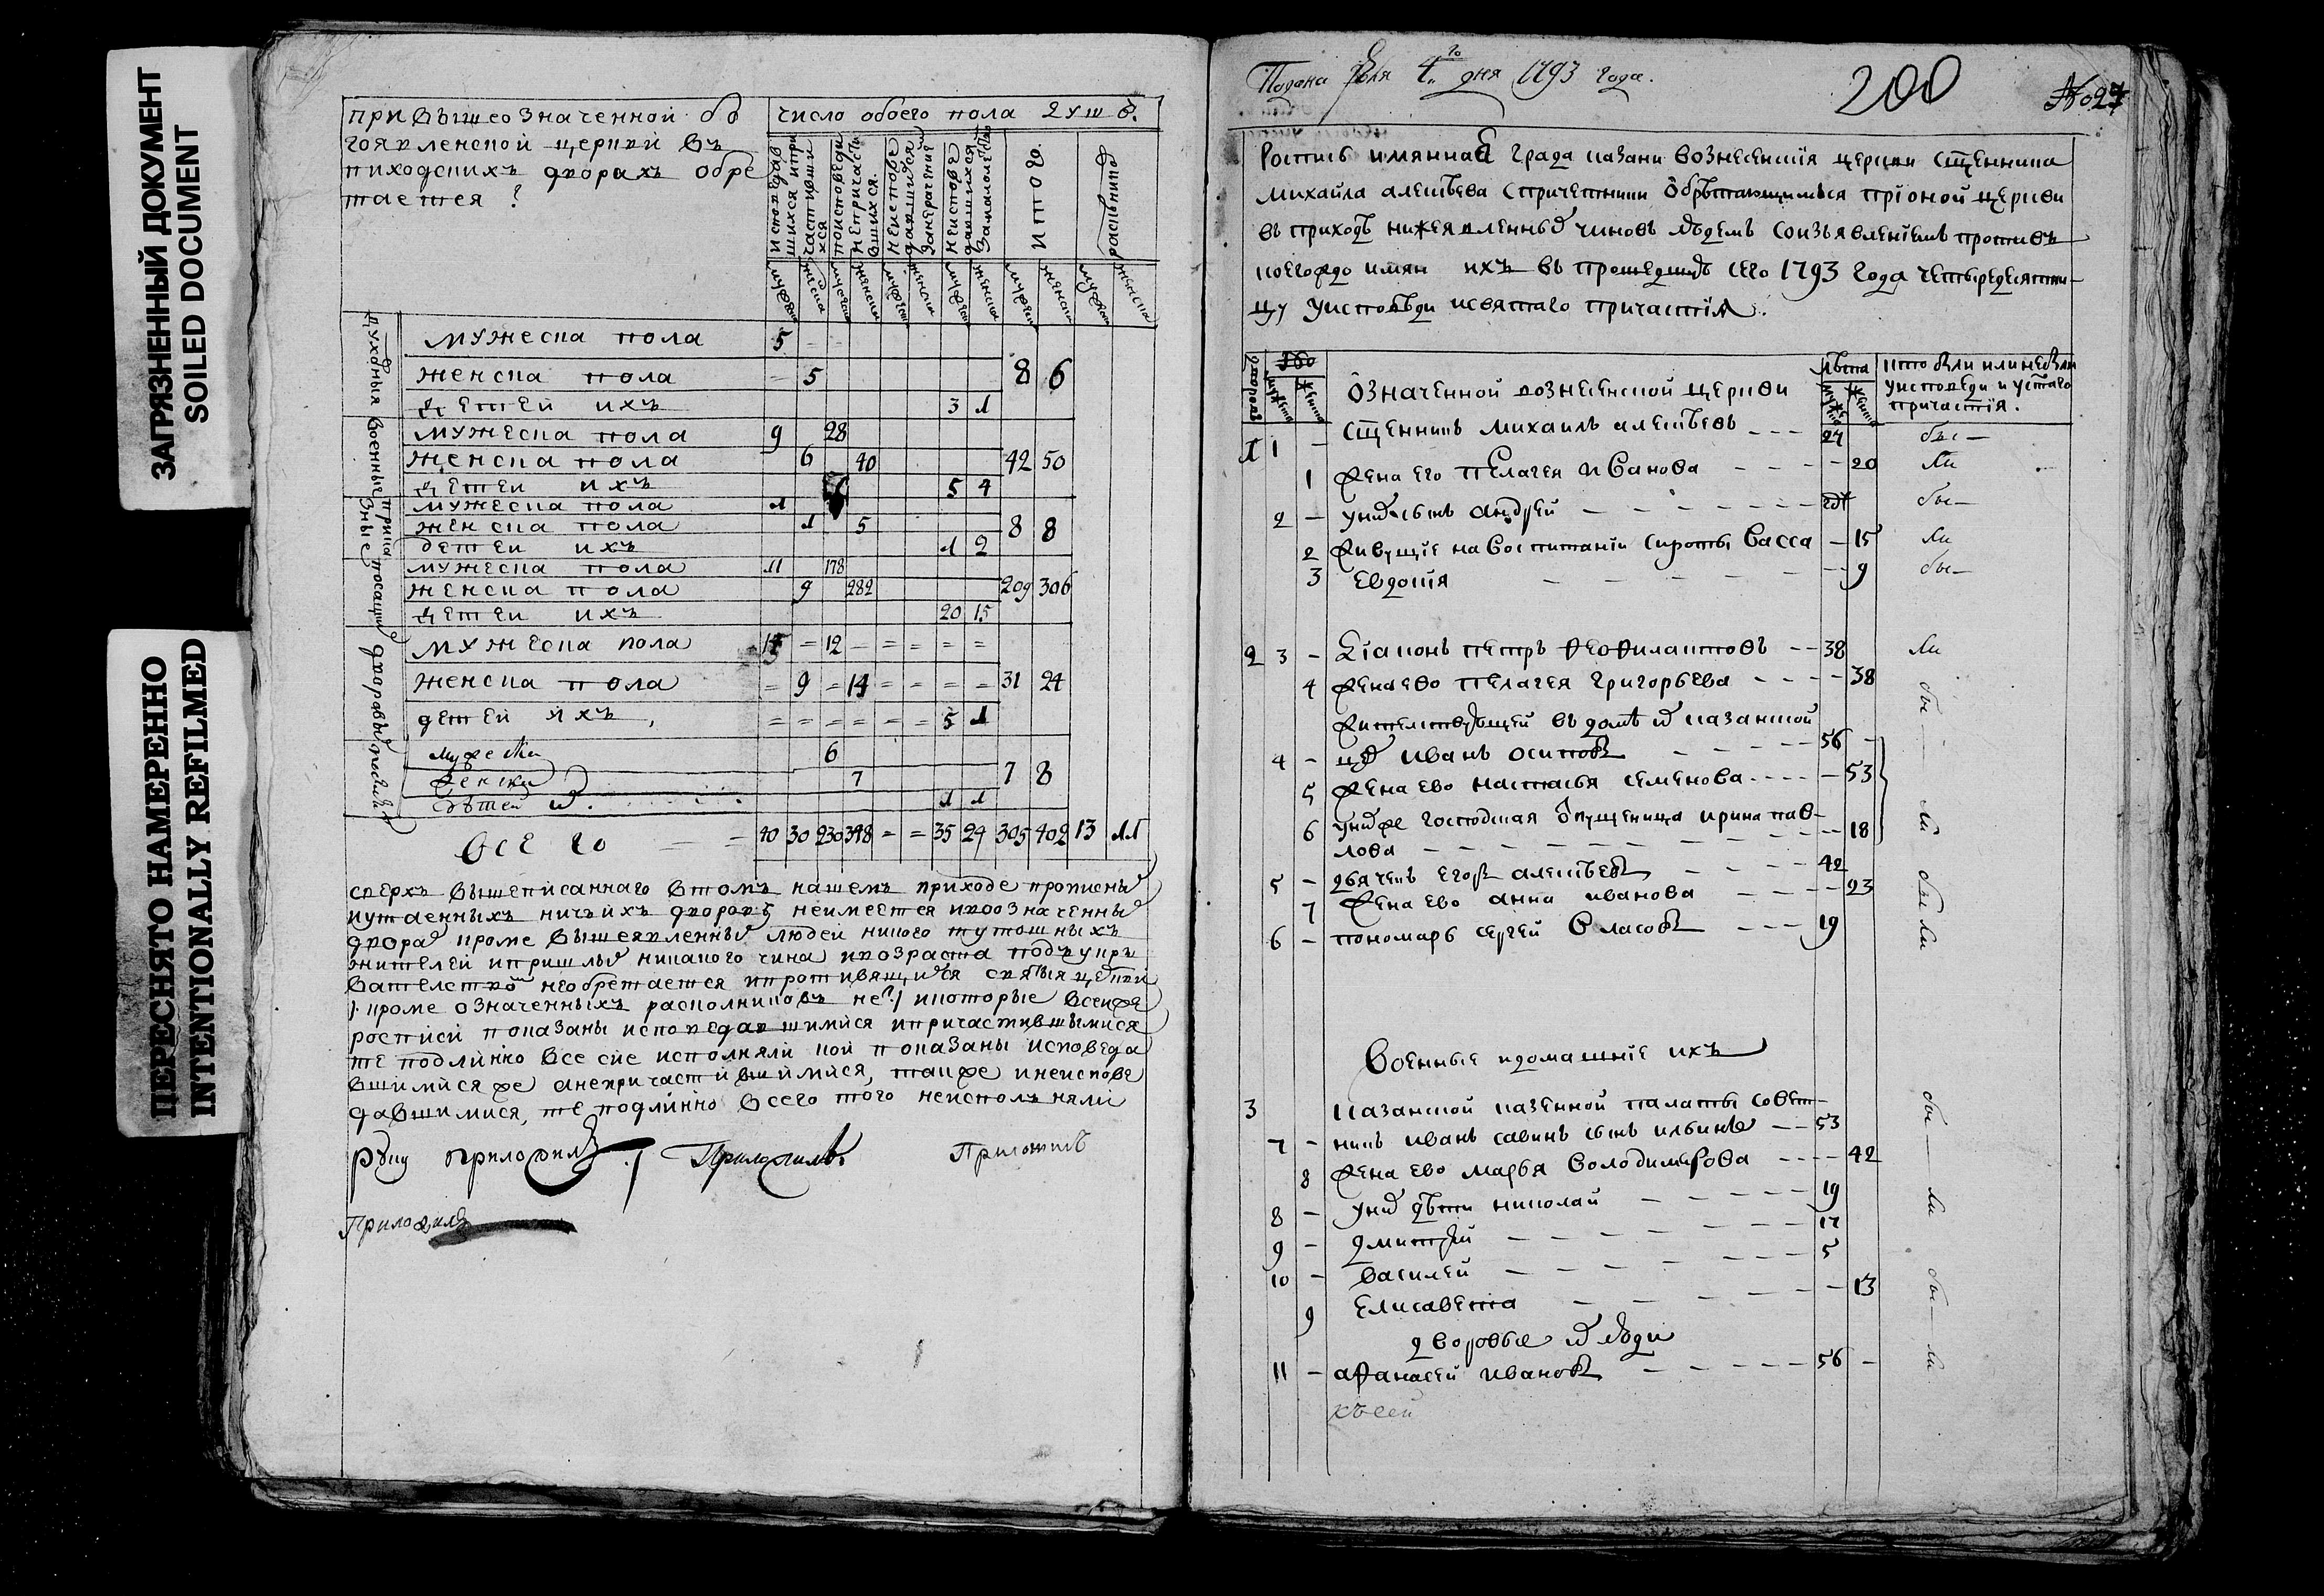 ЗАГРЯЗНЕННЫЙ ДОКУМЕНТ
SOILED DOCUMENT
ПЕРЕСНЯТО НАМЕРЕННО
INTENTIONALLY REFILMED
при вышеозначенной бо
гоявленской церкви въ
приходскихъ дворахъ обре
тается ?
число обоего пола душъ.
итого
духовныя
мужеска пола 5
женска пола 5 8 6
детей ихъ 3 1
военные
мужеска пола 9 28
женска пола 6 40 42 50
детей ихъ 5 4
приказные
мужеска пола 1
женска пола 1 5 8 8
детей ихъ 1 2
посацкие
мужеска пола 11 178
женска пола 9 282 209 306
детей ихъ 20 15
дворовые
мужеска пола 12
женска пола 9 14 31 24
детей ихъ 5 1
мужеска 6
женска 7 7 8
детей их 1 1
всего 40 30 230 348 35 24 305 402 13 11
сверхъ вышеписаннаго втомъ нашемъ приходе прописны
иутаенныхъ ничьихъ дворовъ неимеется ивоозначенны
двора кроме вышеявленны людей никого тутошныхъ
жителей ипришлы никакого чина ивозраста подъукры
вателство необретается ипротивящихся святыя цркви
кроме означенныхъ расколниковъ не икоторые всейже
росписи показаны исповедавшимися ипричастившымися
те подлинно все сие исполняли кои показаны исповеда
вшимися же анепричастившимися, также инеиспове
давшимися, те подлинно всего того неисполняли
руку приложилъ Приложилъ Приложилъ
Приложилъ
Подана 4го дня 1793 года.
200
No 27
Роспись имянная града казани вознесенскїя церкви сщенника
михайла алексѣева спричетники обрѣтающимъсяприоной церкви
въ приходѣ нижеявленных чиновъ людемъ соизъявленїемъ противъ
коегождо имян ихъ въ прошедшую сего 1793 года четыредесятни-
цу уисповѣди исвятаго причастїя.
лѣта
кто были илинебыли
уисповеди иустаго
причастїя.
Означенной вознесенской церкви
1 1 – сщенникъ михаилъ алексѣевъ – – – 24 бы –
1 жена его пелагея иванова – – – – 20 ли
2 – уних сынъ андрей – – – – – – бы –
2 живущїе навоспитанїи сироты васса – 15 ли
3 евдокїя – – – – – – 9 бы –
2 3 – дїаконъ петръ феофилактовъ – – 38 ли
4 жена ево пелагея григорьева – – – – 38
жителствующей въ домѣ их казанской
4 – иванъ осиповъ – – – – – 56 –
5 жена ево настасья семенова – – – – – 53
6 уних же господская отпущеница ирина пав-
лова – – – – – – – – – 18
5 – дьячекъ егоръ алексѣевъ – – – – 42
7 жена ево анна иванова – – – – 23
6 – пономарь сергей власовъ – – – 19
бы – ли были
военные идомашнїе ихъ
3 казанской казенной палаты совет-
7 – никъ иванъ савинъ сынъ ильинъ – – 53
8 жена ево марья володимерова – – – – 42
8 – уних дѣти николай – – – – – 19
9 – дмитрей – – – – – – – 17
10 – василей – – – – – – – 5
9 елисавета – – – – – – 13
дворовые их люди
11 – афанасей ивановъ – – – – – 56 –
бы – ли бы – ли